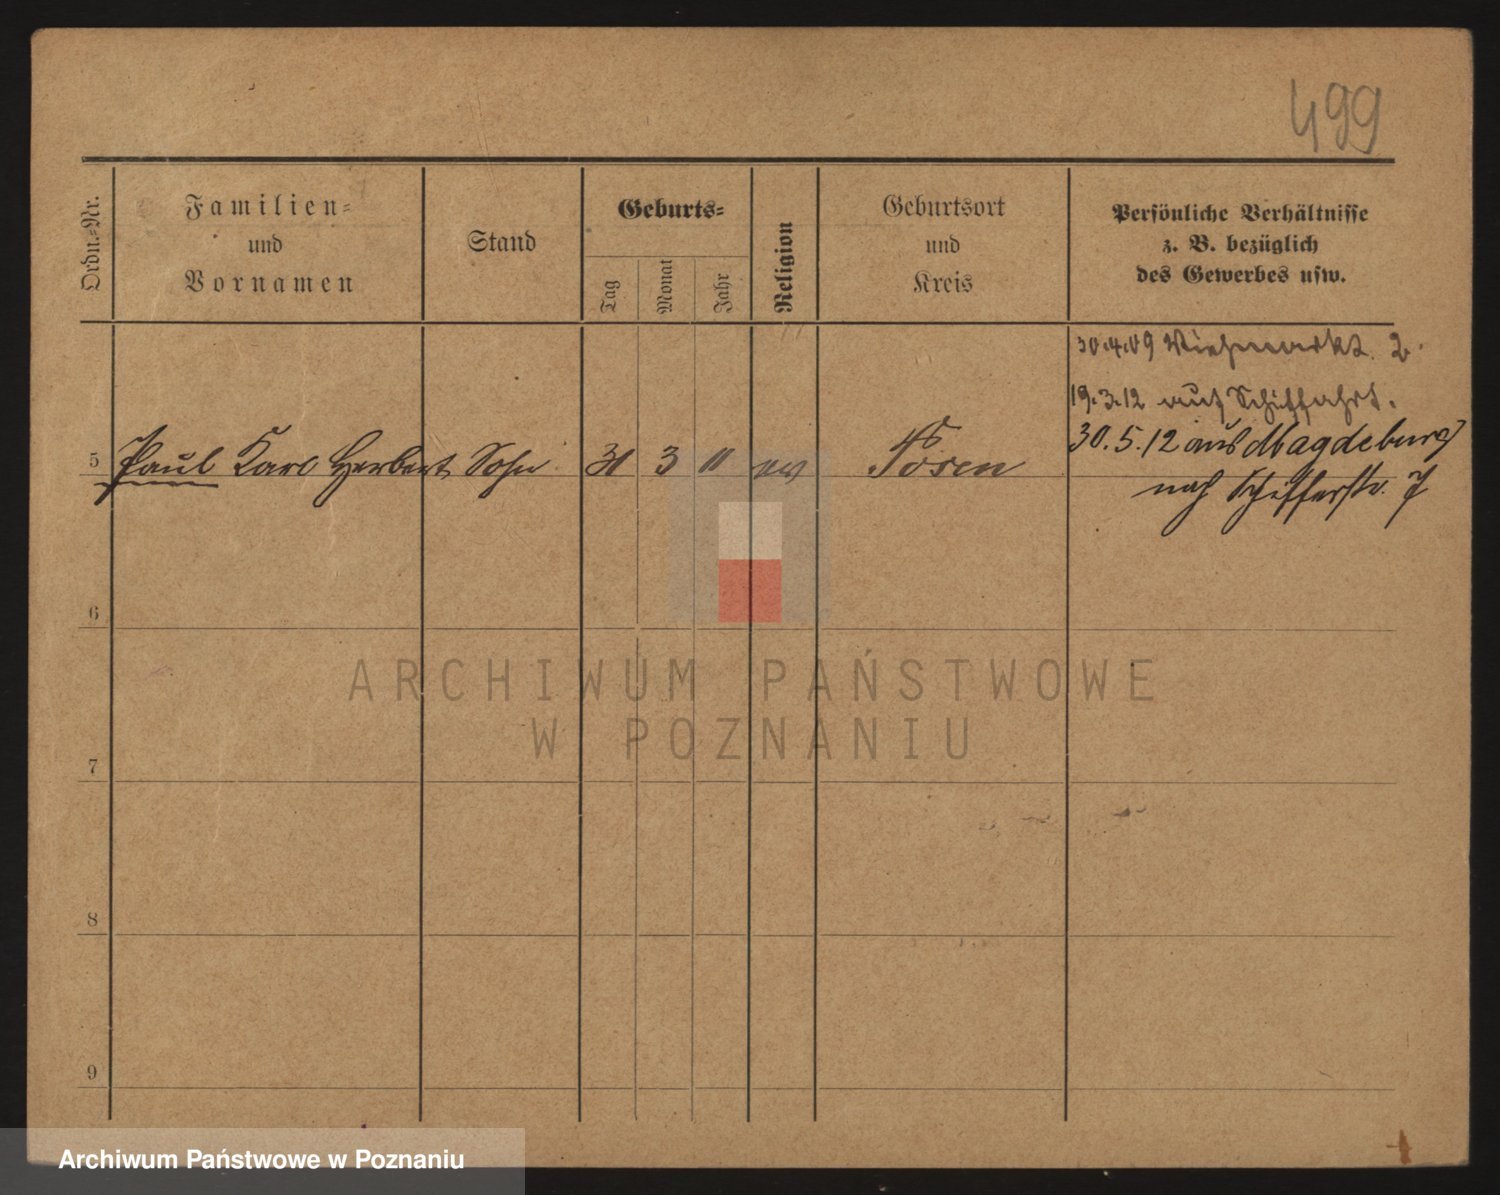 499
Ordn.-Nr.
Familien-
und
Vornamen
Stand
Geburts-
Tag
Monat
Jahr
Religion
Geburtsort
und
Kreis
Persönliche Verhältnisse
z. B. bezüglich
des Gewerbes usw.
30.4.09 Viehmarkt 2.
19.3.12 auf Schiffahrt.
30.5.12 aus Magdeburg
5 Paul Karl Herbert Sohn 3 11 ev Posen
nach Schifferstr. 7
6
ARCHIWUM PAŃSTWOWE
W POZNANIU
7
8
9
Archiwum Państwowe w Poznaniu